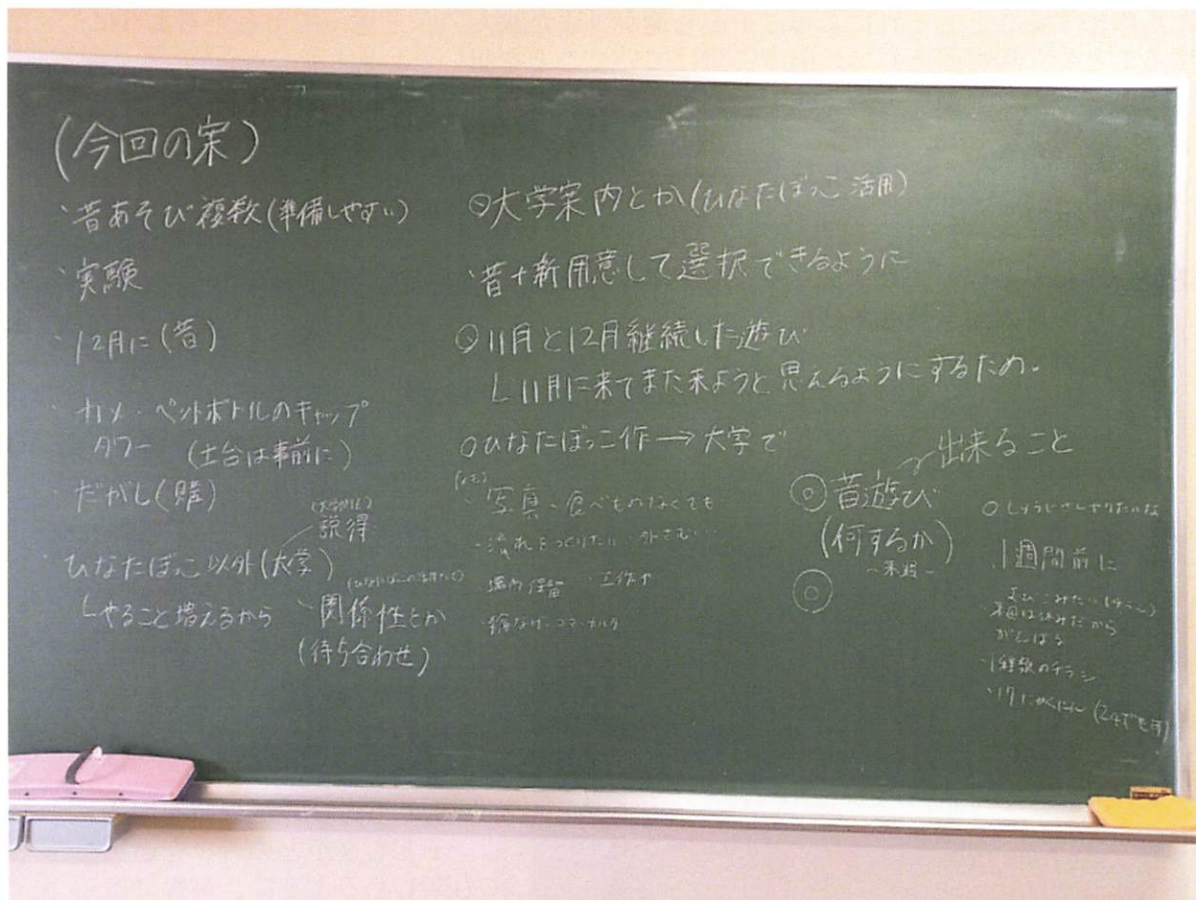 (今回の案)
・昔あそび複数(準備しやすい)
・実験
・12月に(昔)
・カメ・ペットボトルのキャップ
タワー (土台は事前に)
・だがし(購)
説得
・ひなたぼっこ以外(大学)
└やること増えるから
・関係性とか
(待ち合わせ)
◎大学案内とか(ひなたぼっこ活用)
・昔+新用意して選択できるように
◎11月と12月継続した遊び
└11月に来てまた来ようと思えるようにするため。
○ひなたぼっこ作→大学で
・写真・食べものなくても
・流れをつくりたい 外さむい…
・工作か
出来ること
◎昔遊び
(何するか)
~来週~
◎
○しょうじさしやりたいな
・1週間前に
よびこみたい(チラシ)
本日は休みだから
がんばる
・1種類のチラシ